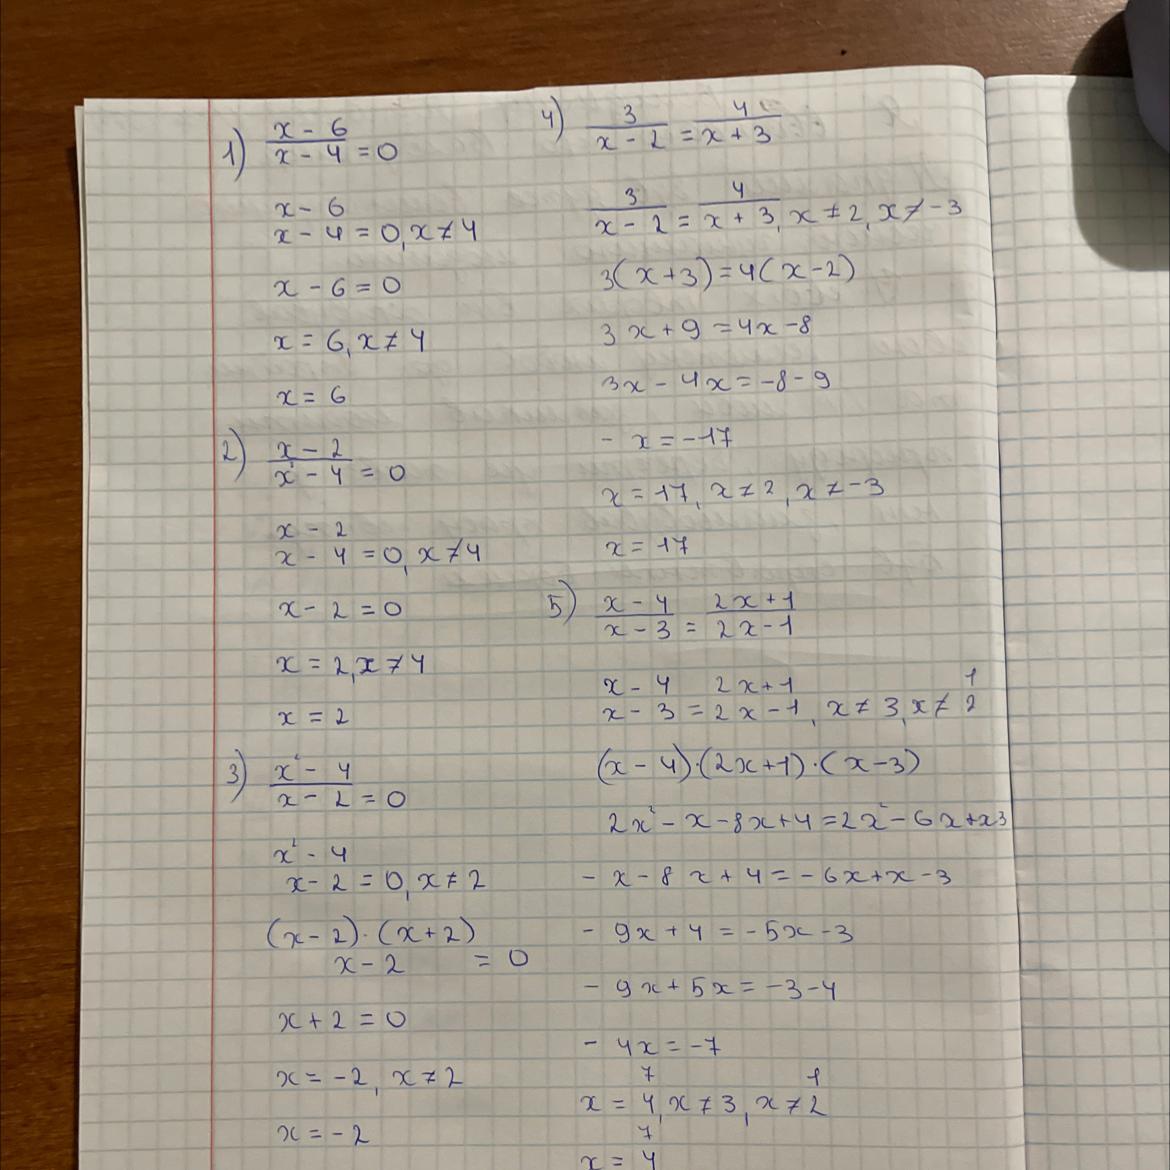 1) x - 6
x - 4 = 0
x - 6
x - 4 = 0, x ≠ 4
x - 6 = 0
x = 6, x ≠ 4
x = 6
2) x - 2
x² - 4 = 0
x - 2
x - 4 = 0, x ≠ 4
x - 2 = 0
x = 2, x ≠ 4
x = 2
3) x² - 4
x - 2 = 0
x² - 4
x - 2 = 0, x ≠ 2
(x - 2) · (x + 2)
x - 2 = 0
x + 2 = 0
x = -2, x ≠ 2
x = -2
4) 3 4
x - 2 = x + 3
3 4
x - 2 = x + 3, x ≠ 2, x ≠ -3
3(x + 3) = 4(x - 2)
3x + 9 = 4x - 8
3x - 4x = -8 - 9
- x = -17
x = 17, x ≠ 2, x ≠ -3
x = 17
5) x - 4 2x + 1
x - 3 = 2x - 1
x - 4 2x + 1 1
x - 3 = 2x - 1, x ≠ 3, x ≠ 2
(x - 4) · (2x + 1) · (x - 3)
2x² - x - 8x + 4 = 2x² - 6x + x3
- x - 8x + 4 = - 6x + x - 3
- 9x + 4 = - 5x - 3
- 9x + 5x = -3 - 4
- 4x = -7
7 1
x = 4, x ≠ 3, x ≠ 2
7
x = 4